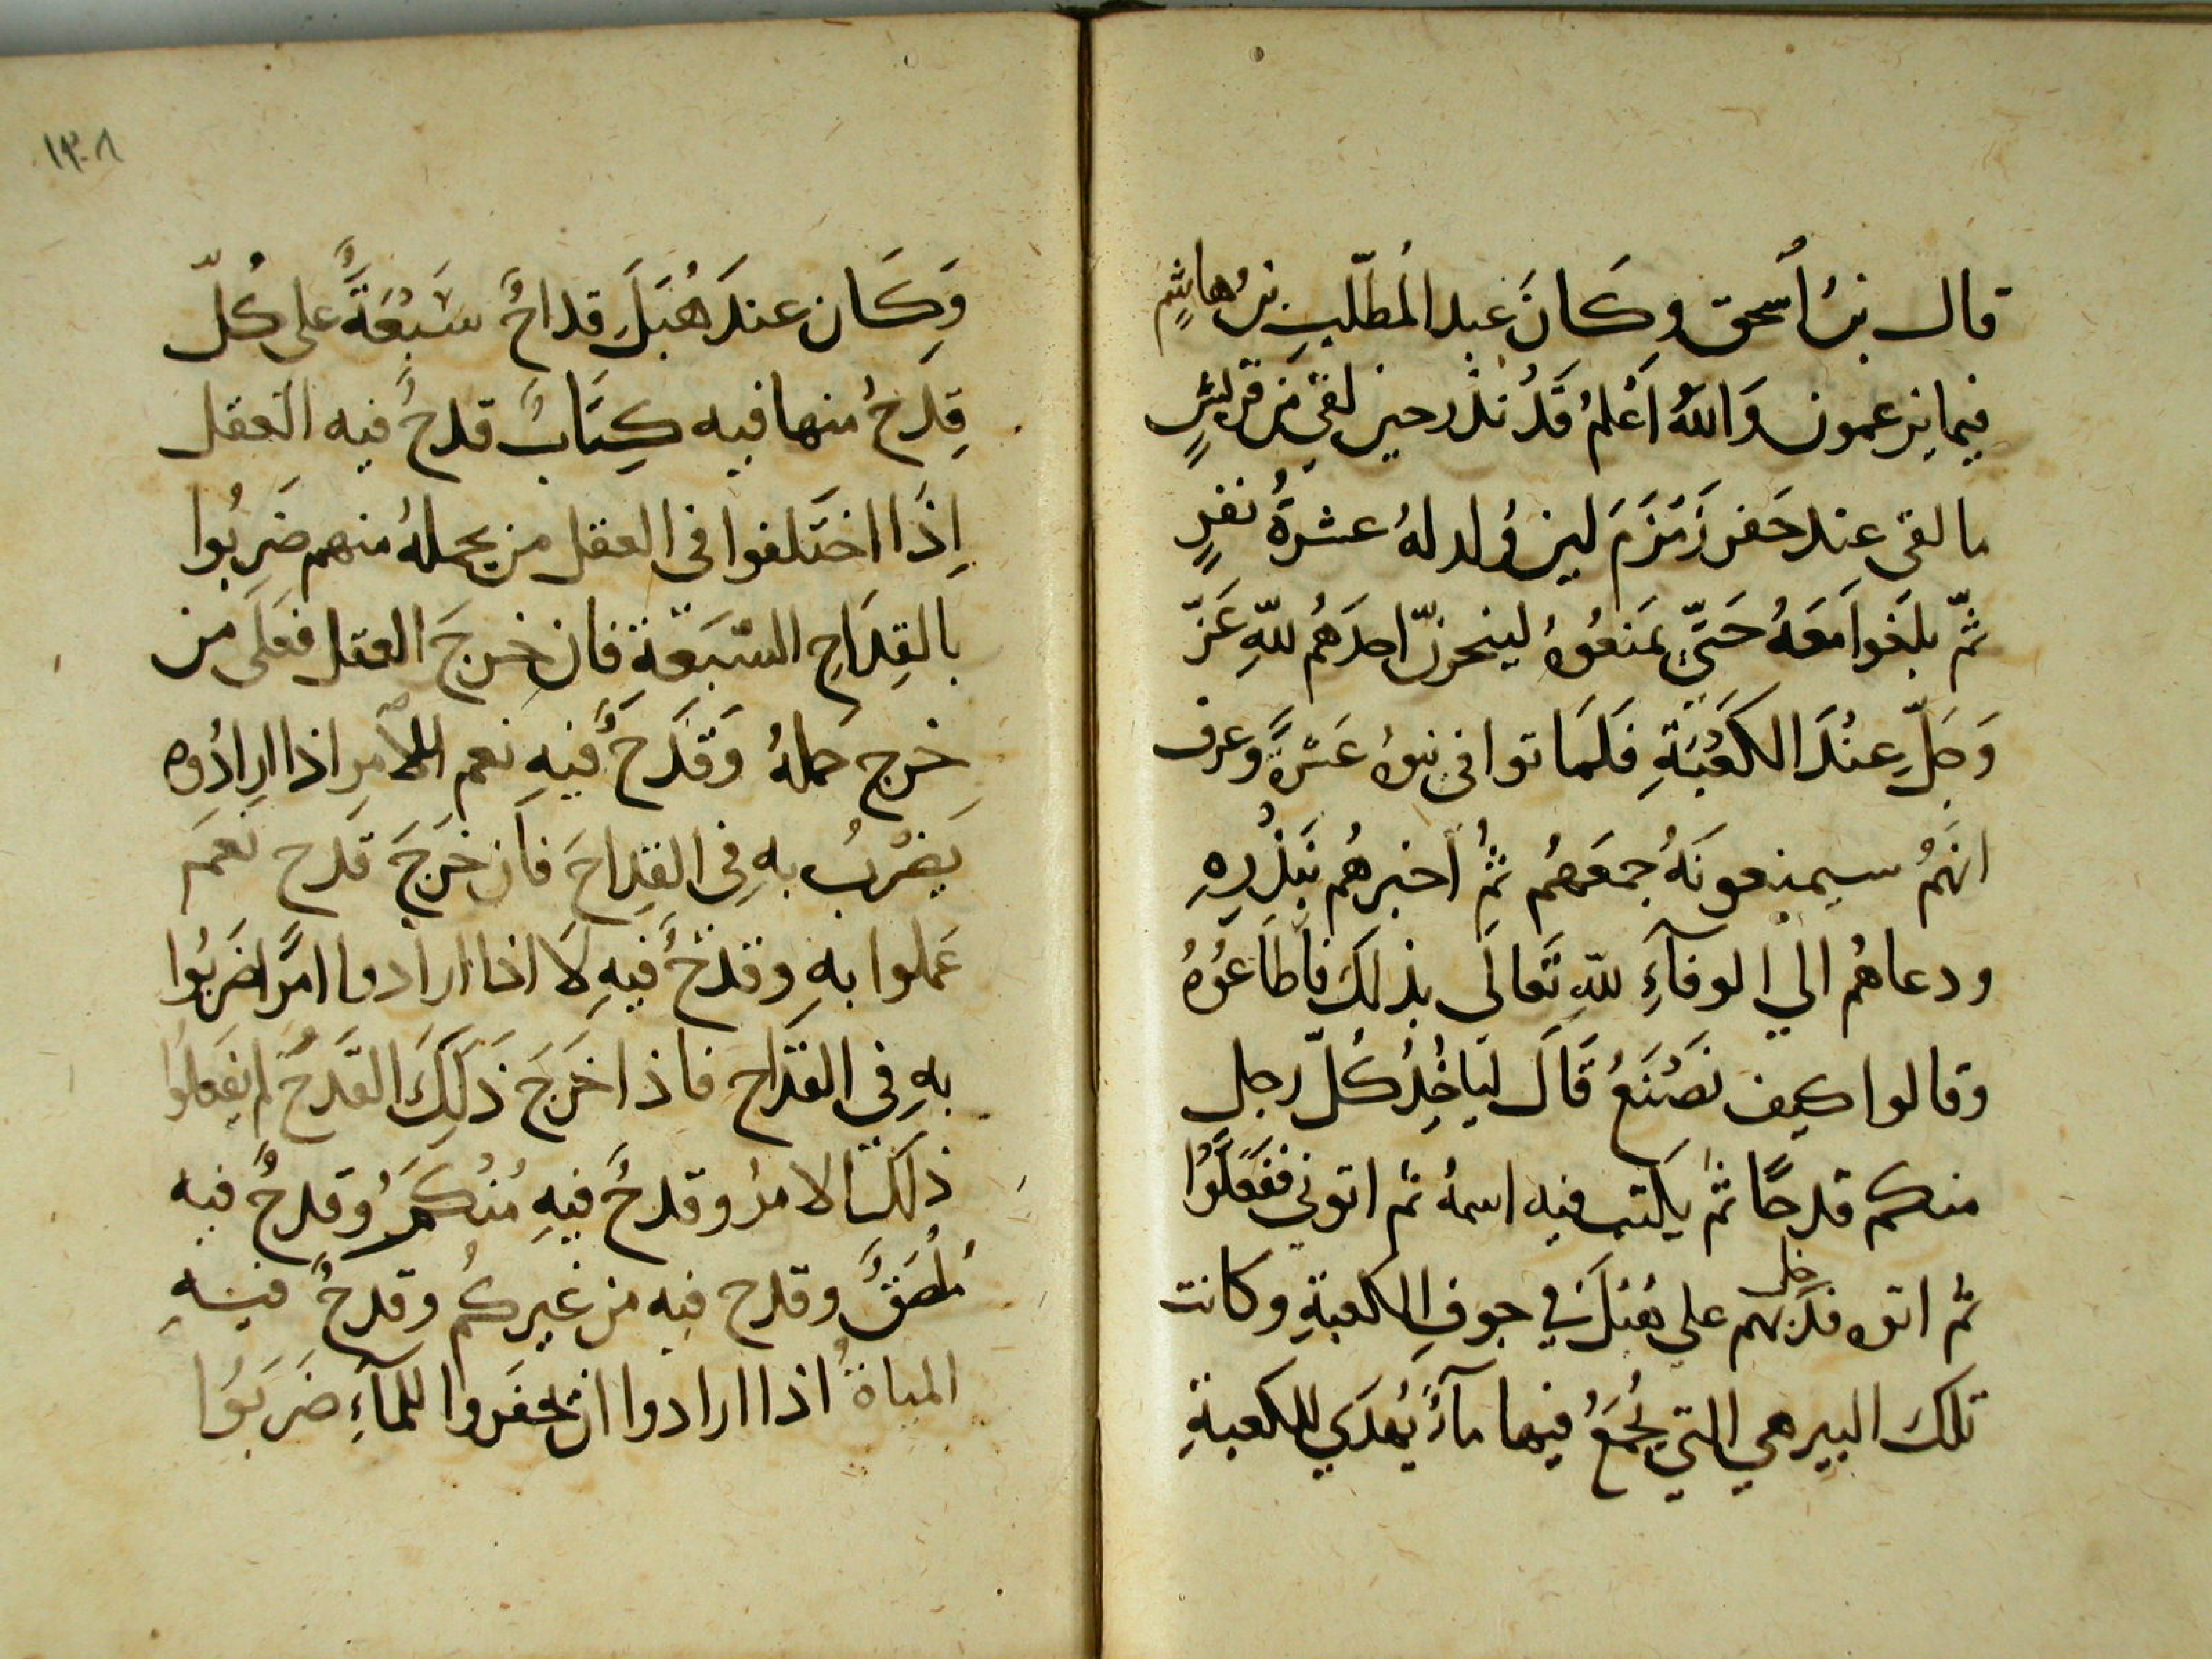 قال بنُ أسحق وكَانَ عبد المُطلّبِ بنُ هاشمٍ
فيما يزعمون وَاللهُ اَعْلمُ قَدْ نذر حين لقي من قريشٍ
ما لقي عند حَفر زَمْزَمَ لين وُلد لهُ عشرةُ نفرٍ
ثمّ بلغوا مَعَهُ حَتّي يمَنعُوهُ لينحرنّ احدَهُم للّهِ عَزّ
وَجَلّ عِنْدَ الكَعْبَةِ فَلمَا توافي بنوهُ عَشرةً وعرف
انهُم سيمنعونَهُ جمعَهُم ثمُ أخبرهُم بنَذْرِهِ
ودعاهُم الي الوفآءِ للّهِ تَعالَي بذلكَ فاَطَاعُوهُ
وقالوا كيف نَصْنَعُ قَالَ ليَاخُذْ كُلّ رجل
منكم قدحًا ثمّ يكتب فيه اسمهُ ثم اتوني فَفعَلُوا
ثمّ اتوه فدخل بهم علي هُبَلَ في جوفِ الكعبةِ وكانت
تلكَ البير هي التي يُجمَعُ فيها مآءً يُهدَي للكعبةِ
١٣٠٨
وَكَان عندَ هُبَلَ قداحٌ سَبْعَةً علي كُلّ
قِدحُ منها فيه كِتَابٌ قدحٌ فيه العَقل
اِذَا اختَلفوا في العقل من يحملهُ منهم ضَرِبُوا
بالقِدَاحِ السّبَعَةِ فان خرجَ العقل فَعَلَي من
خرج حملهُ وَقَدَحٌ فيهِ نعم للأمرِ اذا ارادُوه
يَضْرَبُ بهِ في القِدَاحَ فاَن خَرَجَ قدح نَعَمَ
عَملوا بهِ وقدحٌ فيهِ لَا اذا ارادوا امرًا ضَربُوا
بهِ في القدَاح فاذا خَرَجَ ذَلِكَ القَدحُ لم يَفعَلوُا
ذلكَ الامرُ وقدحٌ فيهِ مُنْكمُ وقدحٌ فيه
مُلصَقٌ وقدح فيه من غيركُم وقدحٌ فيهِ
المياهُ اذا ارادوا ان يحفَروا للمآءِ ضَربَوُا